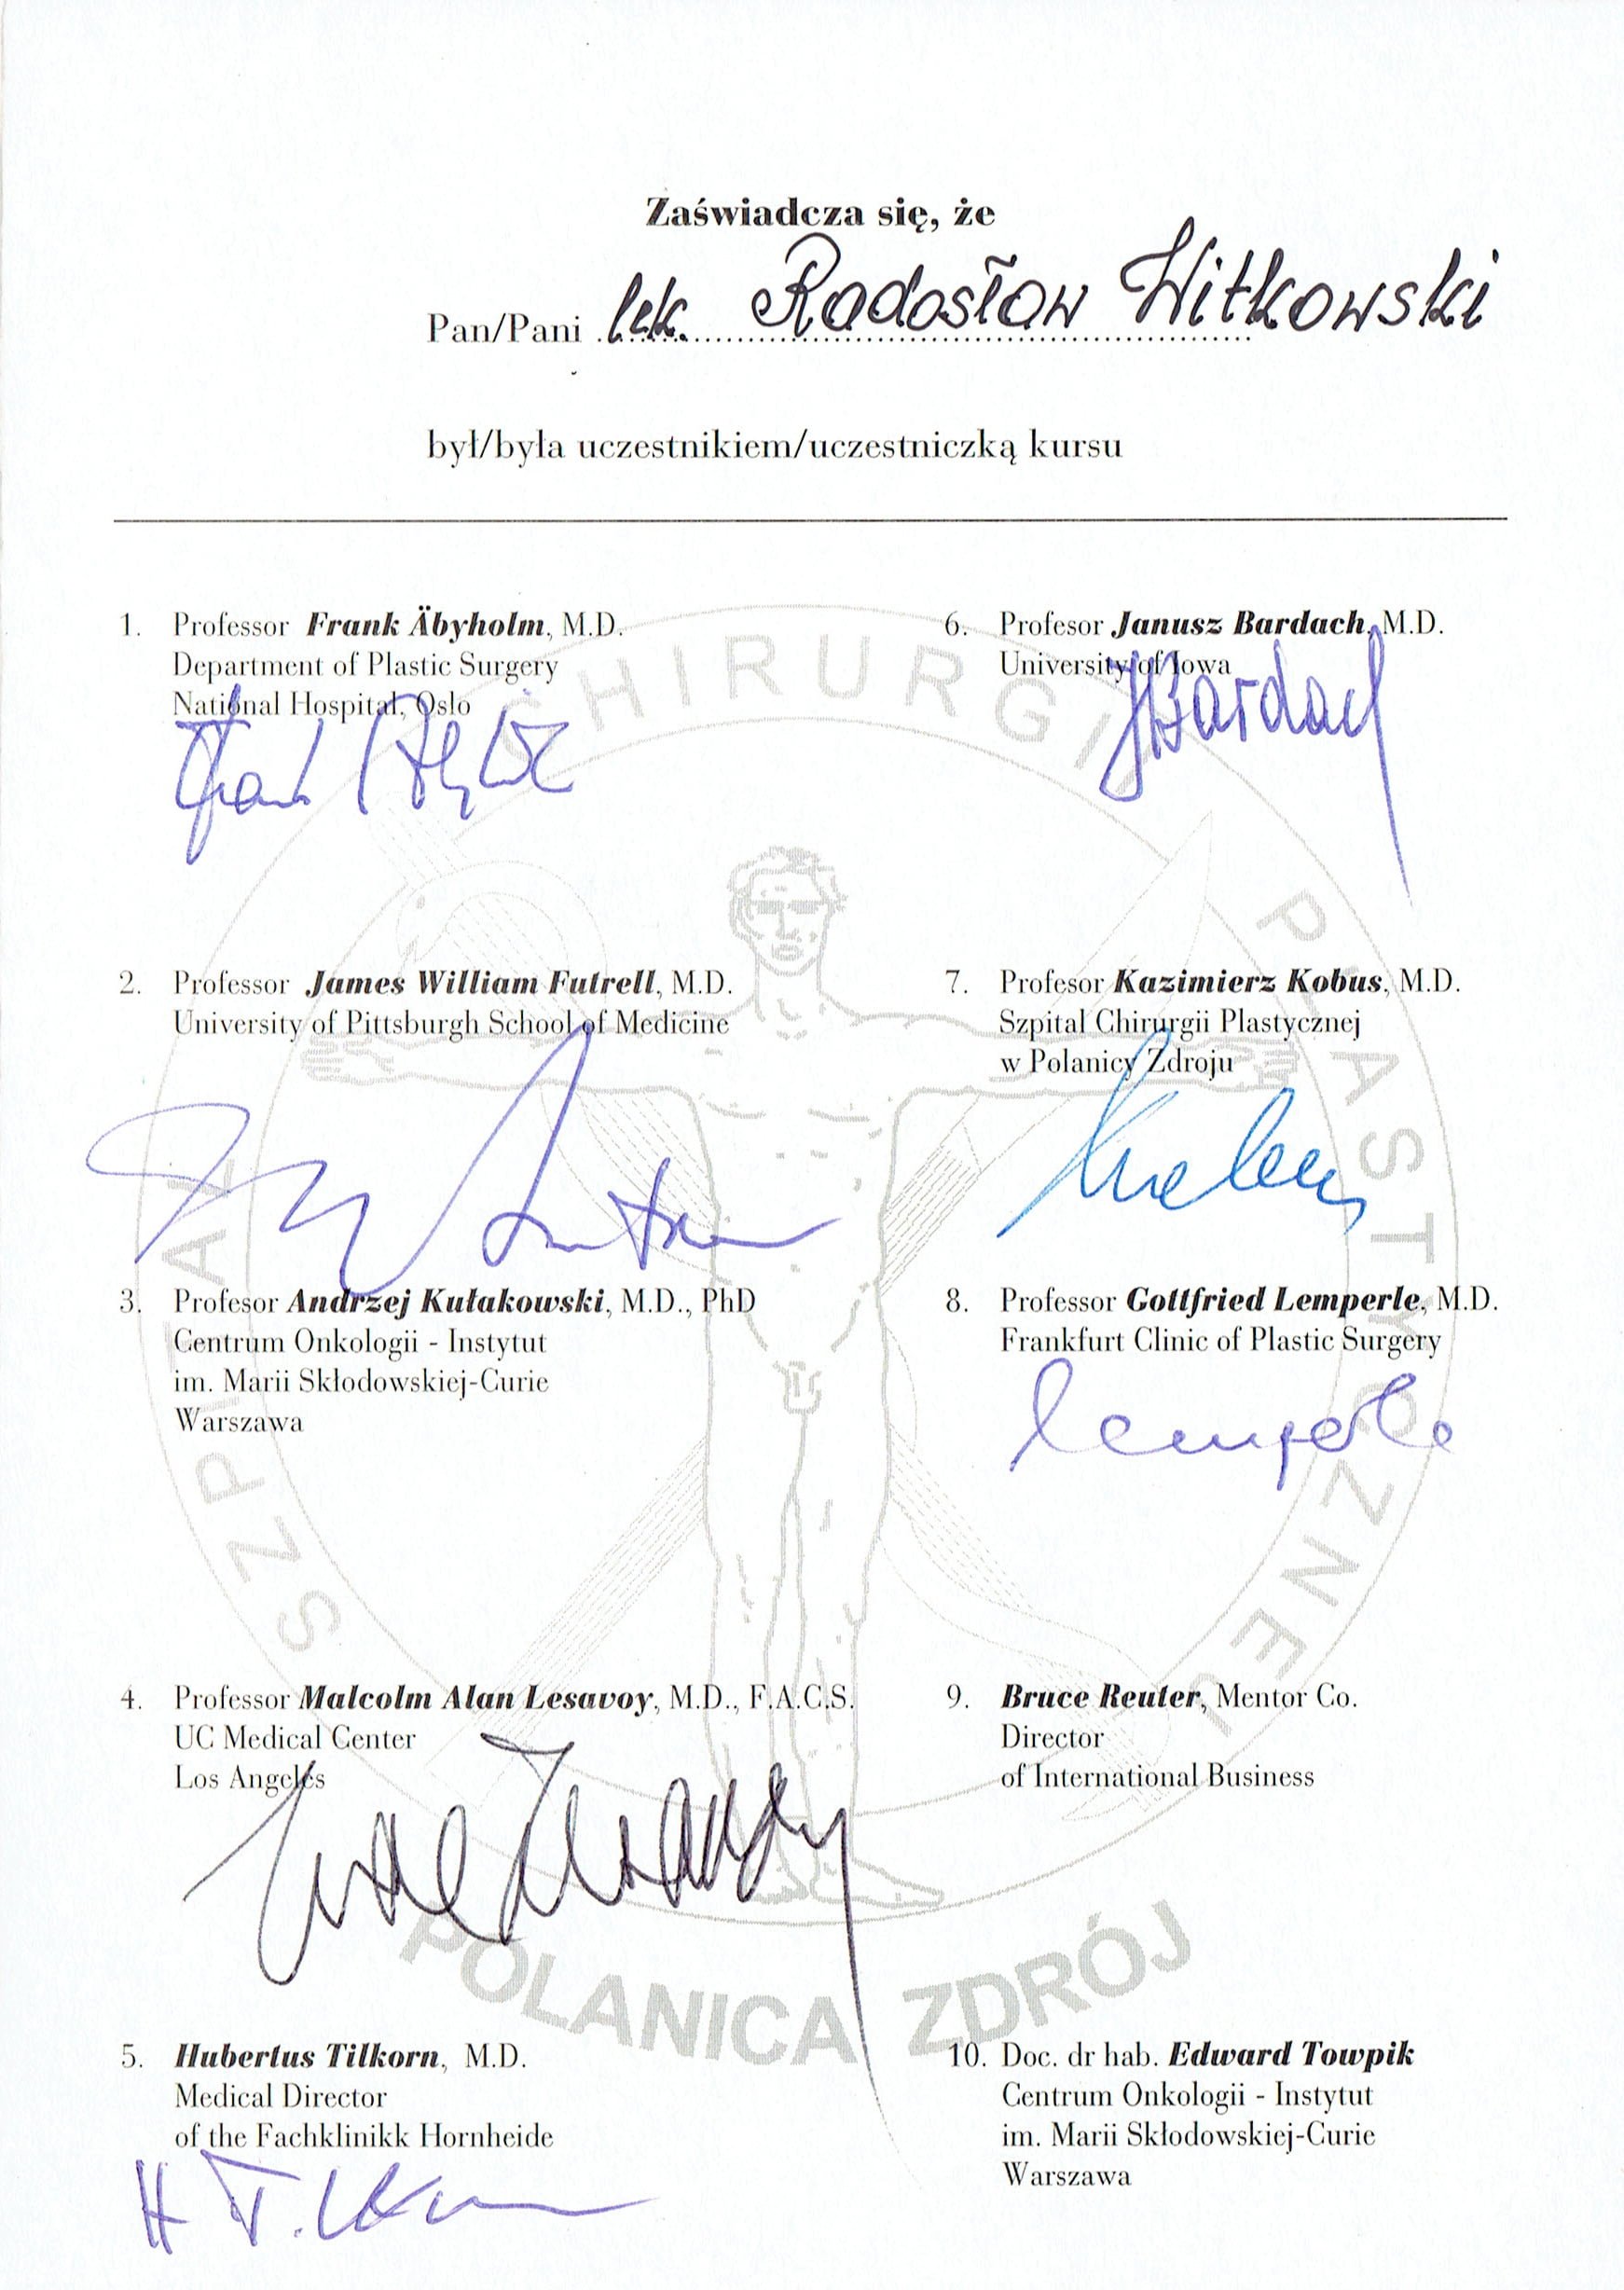 Zaświadcza się, że
Pan/Pani lek. Radosław Witkowski
był/była uczestnikiem/uczestniczką kursu
1. Professor Frank Äbyholm, M.D.
Department of Plastic Surgery
National Hospital, Oslo
2. Professor James William Futrell, M.D.
University of Pittsburgh School of Medicine
3. Profesor Andrzej Kułakowski, M.D., PhD
Centrum Onkologii - Instytut
im. Marii Skłodowskiej-Curie
Warszawa
4. Professor Malcolm Alan Lesavoy, M.D., F.A.C.S.
UC Medical Center
Los Angeles
5. Hubertus Tilkorn, M.D.
Medical Director
of the Fachklinikk Hornheide
H T. Lk
6. Profesor Janusz Bardach, M.D.
University of Iowa
JBardach
7. Profesor Kazimierz Kobus, M.D.
Szpital Chirurgii Plastycznej
w Polanicy Zdroju
8. Professor Gottfried Lemperle, M.D.
Frankfurt Clinic of Plastic Surgery
Lemperle
9. Bruce Reuter, Mentor Co.
Director
of International Business
10. Doc. dr hab. Edward Towpik
Centrum Onkologii - Instytut
im. Marii Skłodowskiej-Curie
Warszawa
SZPITAL CHIRURGII PLASTYCZNEJ
POLANICA ZDRÓJ